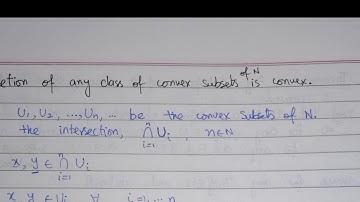 of N
ction of any class of convex subsets is convex.
U₁, U₂, ..., Uₙ, ... be the convex subsets of N.
the intersection, ⋂ᵢ₌₁ⁿ Uᵢ , n∈N
x, y ∈ ⋂ᵢ₌₁ⁿ Uᵢ
x, y ∈ Uᵢ ∀ i=1,...n